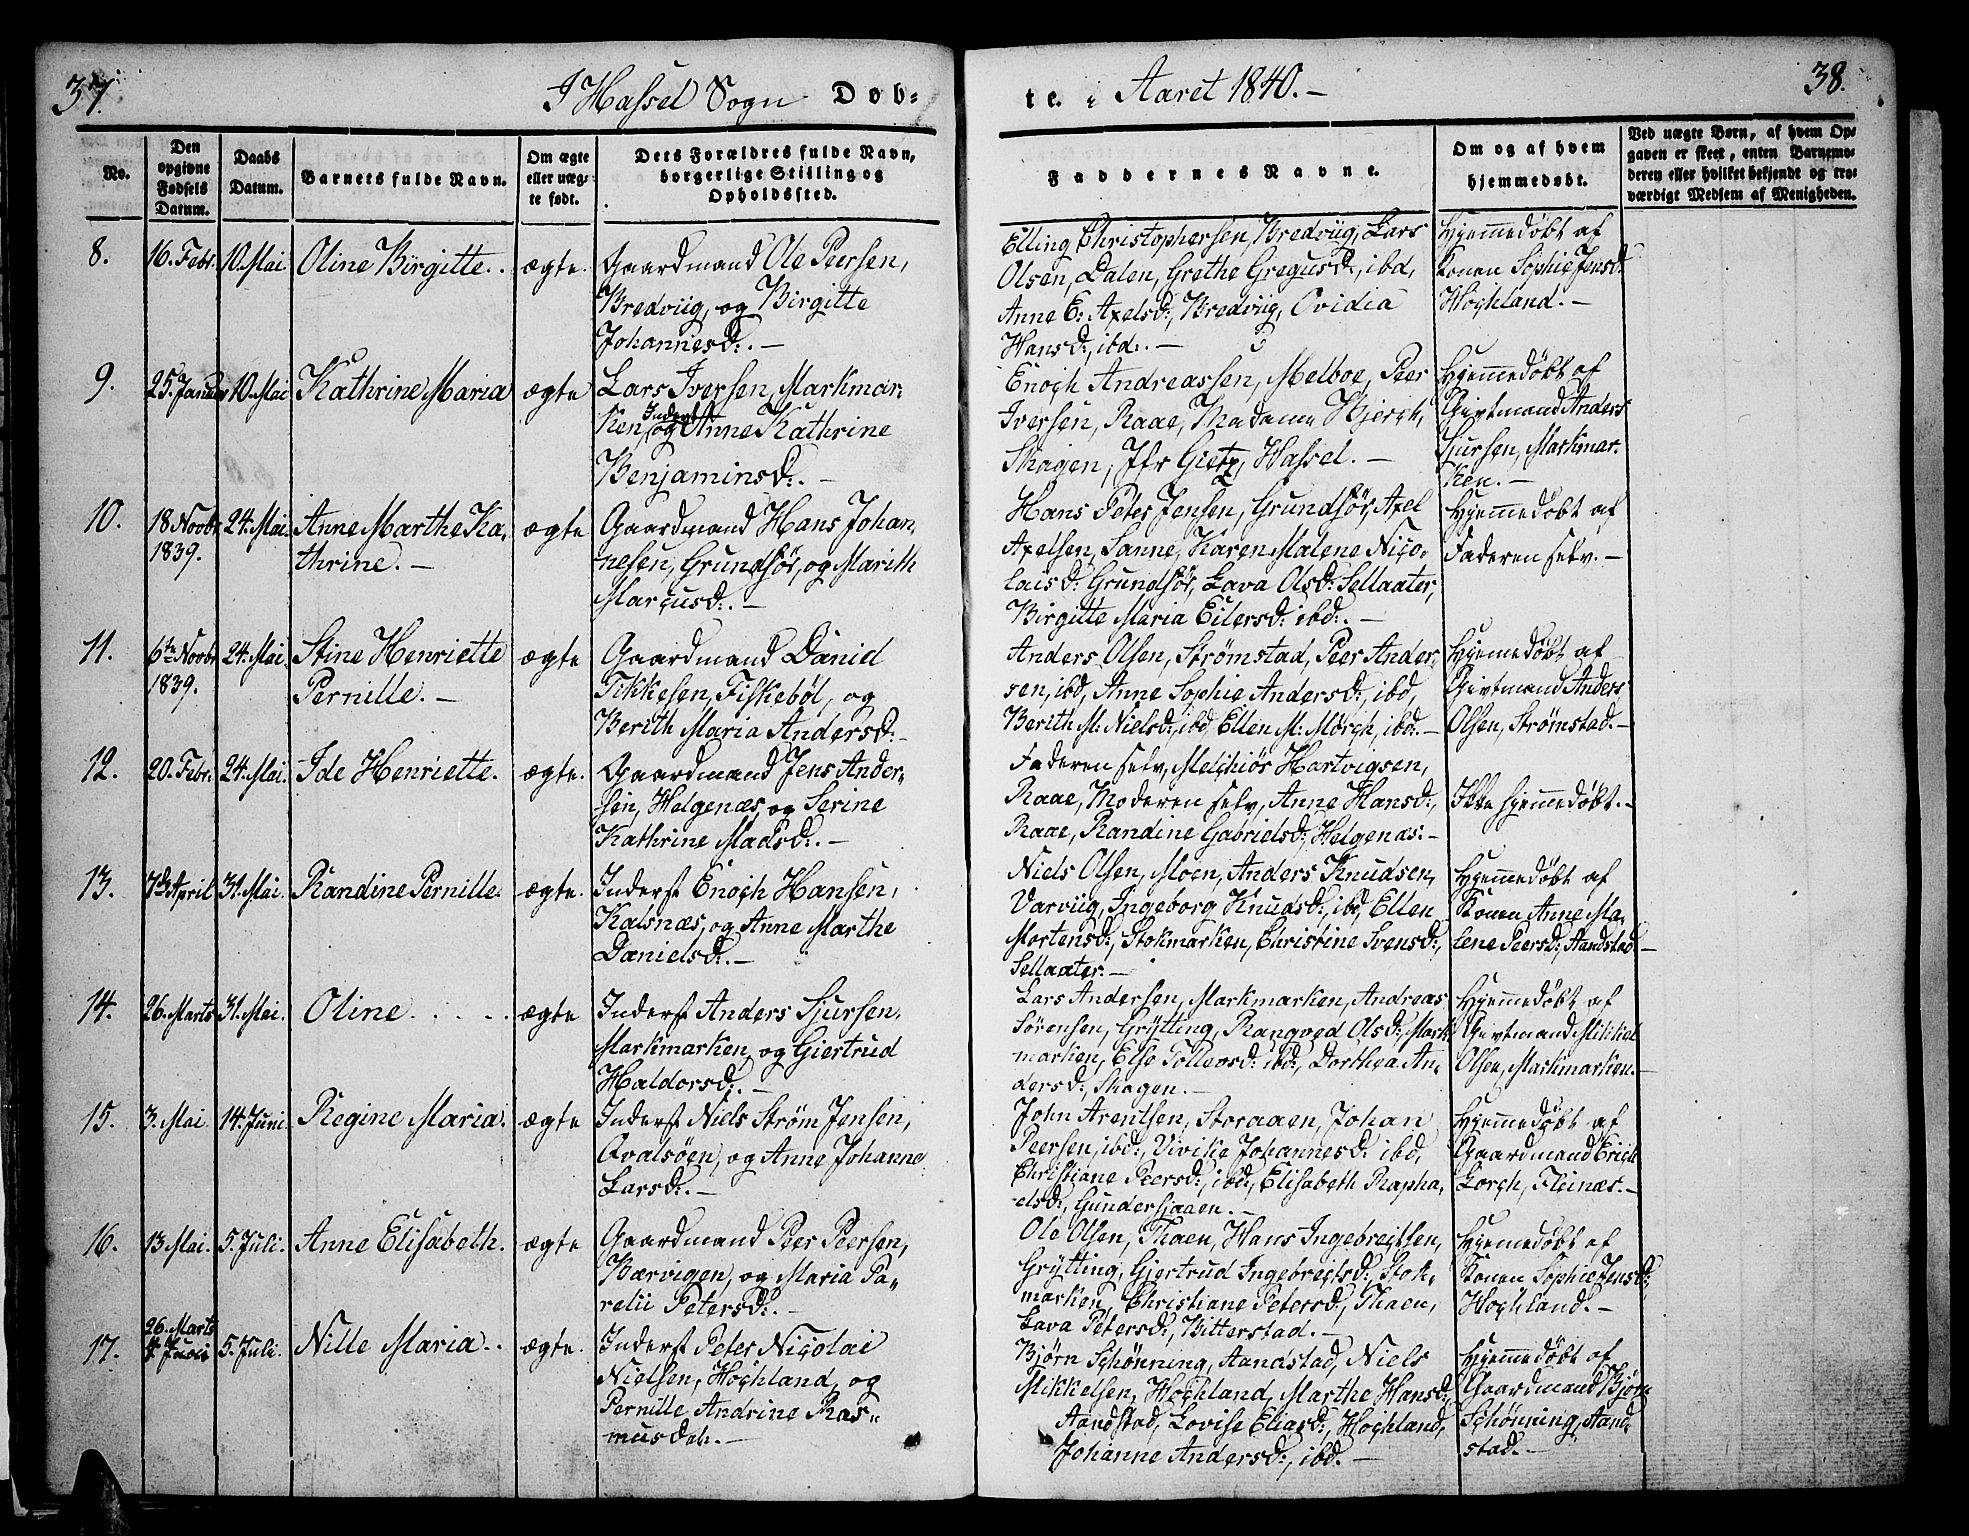 37.
I Hassel Sogn Døb-
te. i Aaret 1840. -
38.
No.
Den
opgivne
Fødsels
Datum.
Daabs
Datum.
Barnets fulde Navn.
Om ægte
eller uæg-
te født.
Dets Forældres fulde Navn,
borgerlige Stilling og
Opholdssted.
Faddernes Navne.
Om og af hvem
hjemmedøbt.
Ved uægte Børn, af hvem Op-
gaven er skeet, enten Barnemo-
deren eller hvilket bekjendt og tro-
værdigt Medlem af Menigheden.
8.
16. Febr.
10. Mai.
Oline Birgitte.
ægte.
Gaardmand Ole Peersen,
Bredviig, og Birgitte
Johannesd:. -
Elling Christophersen, Bredviig, Lars
Olsen, Dalen, Grethe Gregusd:, ibd,
Anne E: Axelsd:, Bredviig, Ovidia
Hansd:, ibd:. -
Hjemmedøbt af
Konen Sophie Jensd:
Hochland. -
9.
25. Januar
10. Mai
Kathrine Maria
ægte
Lars Iversen, Markmar-
ken, Inderst og Anne Kathrine
Benjaminsd:. -
Enoch Andreassen, Melboe, Peer
Iversen, Raae, Madame Hjerch,
Skagen, Jfr Gietz, Hassel. -
Hjemmedøbt af
Givtmand Anders
Sjursen, Markmar-
ken. -
10.
18 Novbr
1839.
24. Mai.
Anne Marthe Ka-
thrine. -
ægte
Gaardmand Hans Johan-
nesen, Grundfør, og Marith
Marcusd:. -
Hans Peter Jensen, Grundfør, Axel
Axelsen, Sanne, Karen Malene Nico-
laisd: Grundfør, Lava Olsd: Sellaater,
Birgitte Maria Eilersd: ibd:. -
Hjemmedøbt af
Faderen selv. -
11.
6te Novbr
1839.
24. Mai
Stine Henriette
Pernille. -
ægte
Gaardmand Daniel
Tikkesen, Fiskebøl, og
Berith Maria Andersd:-
Anders Olsen, Strømstad, Peer Ander-
sen, ibd, Anne Sophie Andersd:, ibd,
Berith M: Nielsd:, ibd, Ellen M: Mørch, ibd:. -
Hjemmedøbt af
Givtmand Anders
Olsen, Strømstad. -
12.
20. Febr.
24. Mai.
Ide Henriette.
ægte.
Gaardmand Jens Ander-
sen, Helgenæs, og Serine
Kathrine Madsd:. -
Faderen selv, Melchiør Hartvigsen,
Raae, Moderen selv, Anne Hansd:,
Raae, Randine Gabrielsd:, Helgenæs. -
Ikke hjemmedøbt. -
13.
7de April
31. Mai.
Randine Pernille.
ægte.
Inderst Enoch Hansen,
Kalsnæs, og Anne Marthe
Danielsd:. -
Niels Olsen, Moen, Anders Knudsen,
Varviig, Ingeborg Knudsd:, ibd, Ellen
Mortensd:, Stokmarken, Christine Svensd:,
Sellaater. -
Hjemmedøbt af
Konen Anne Ma-
lene Peersd:, Sandstad -
14.
26. Marts
31. Mai.
Oline.
ægte
Inderst Anders Sjursen,
Markmarken, og Giertrud
Haldorsd:. -
Lars Andersen, Markmarken, Andreas
Sørensen, Grytting, Rangved Olsd:, Mark-
marken, Else Tollevsd: ibd:, Dorthea An-
dersd:, Skagen. -
Hjemmedøbt af
Givtmand Mikkel
Olsen, Markmarken. -
15.
3. Mai
14. Juni
Regine Maria.
ægte
Inderst Niels Strøm Jensen,
Qvalsøen, og Anne Johanne
Larsd:. -
John Arentsen, Storaaen, Johan
Peersen, ibd:, Vivike Johannesd: ibd,
Christiane Peersd:, ibd:, Elisabeth Rapha-
elsd:, Gundersjaaen. -
Hjemmedøbt af
Gaardmand Erich
Lorch, Fleinæs. -
16.
13. Mai.
5. Juli.
Anne Elisabeth.
ægte
Gaardmand Peer Peersen,
Bærvigen, og Maria Pa-
relii Petersd:. -
Ole Olsen, Thaen, Hans Ingebreigtsen,
Grytting, Giertrud Ingebreigtsd:, Stok-
marken, Christiane Petersd:, Thaen,
Lava Petersd:, Bitterstad. -
Hjemmedøbt af
Konen Sophie Jensd:,
Hochland. -
17.
26. Marts
5. Juli.
Nille Maria.
ægte.
Inderst Peter Nicolai
Nielsen, Hochland, og
Pernille Andrine Ras-
musdat:. -
Bjørn Schønning, Sandstad, Niels
Mikkelsen, Hochland, Marthe Hansd:,
Sandstad, Lovise Eliasd:, Hochland,
Johanne Andersd:, ibd. -
Hjemmedøbt af
Gaardmand Bjørn
Schønning, Sand-
stad. -